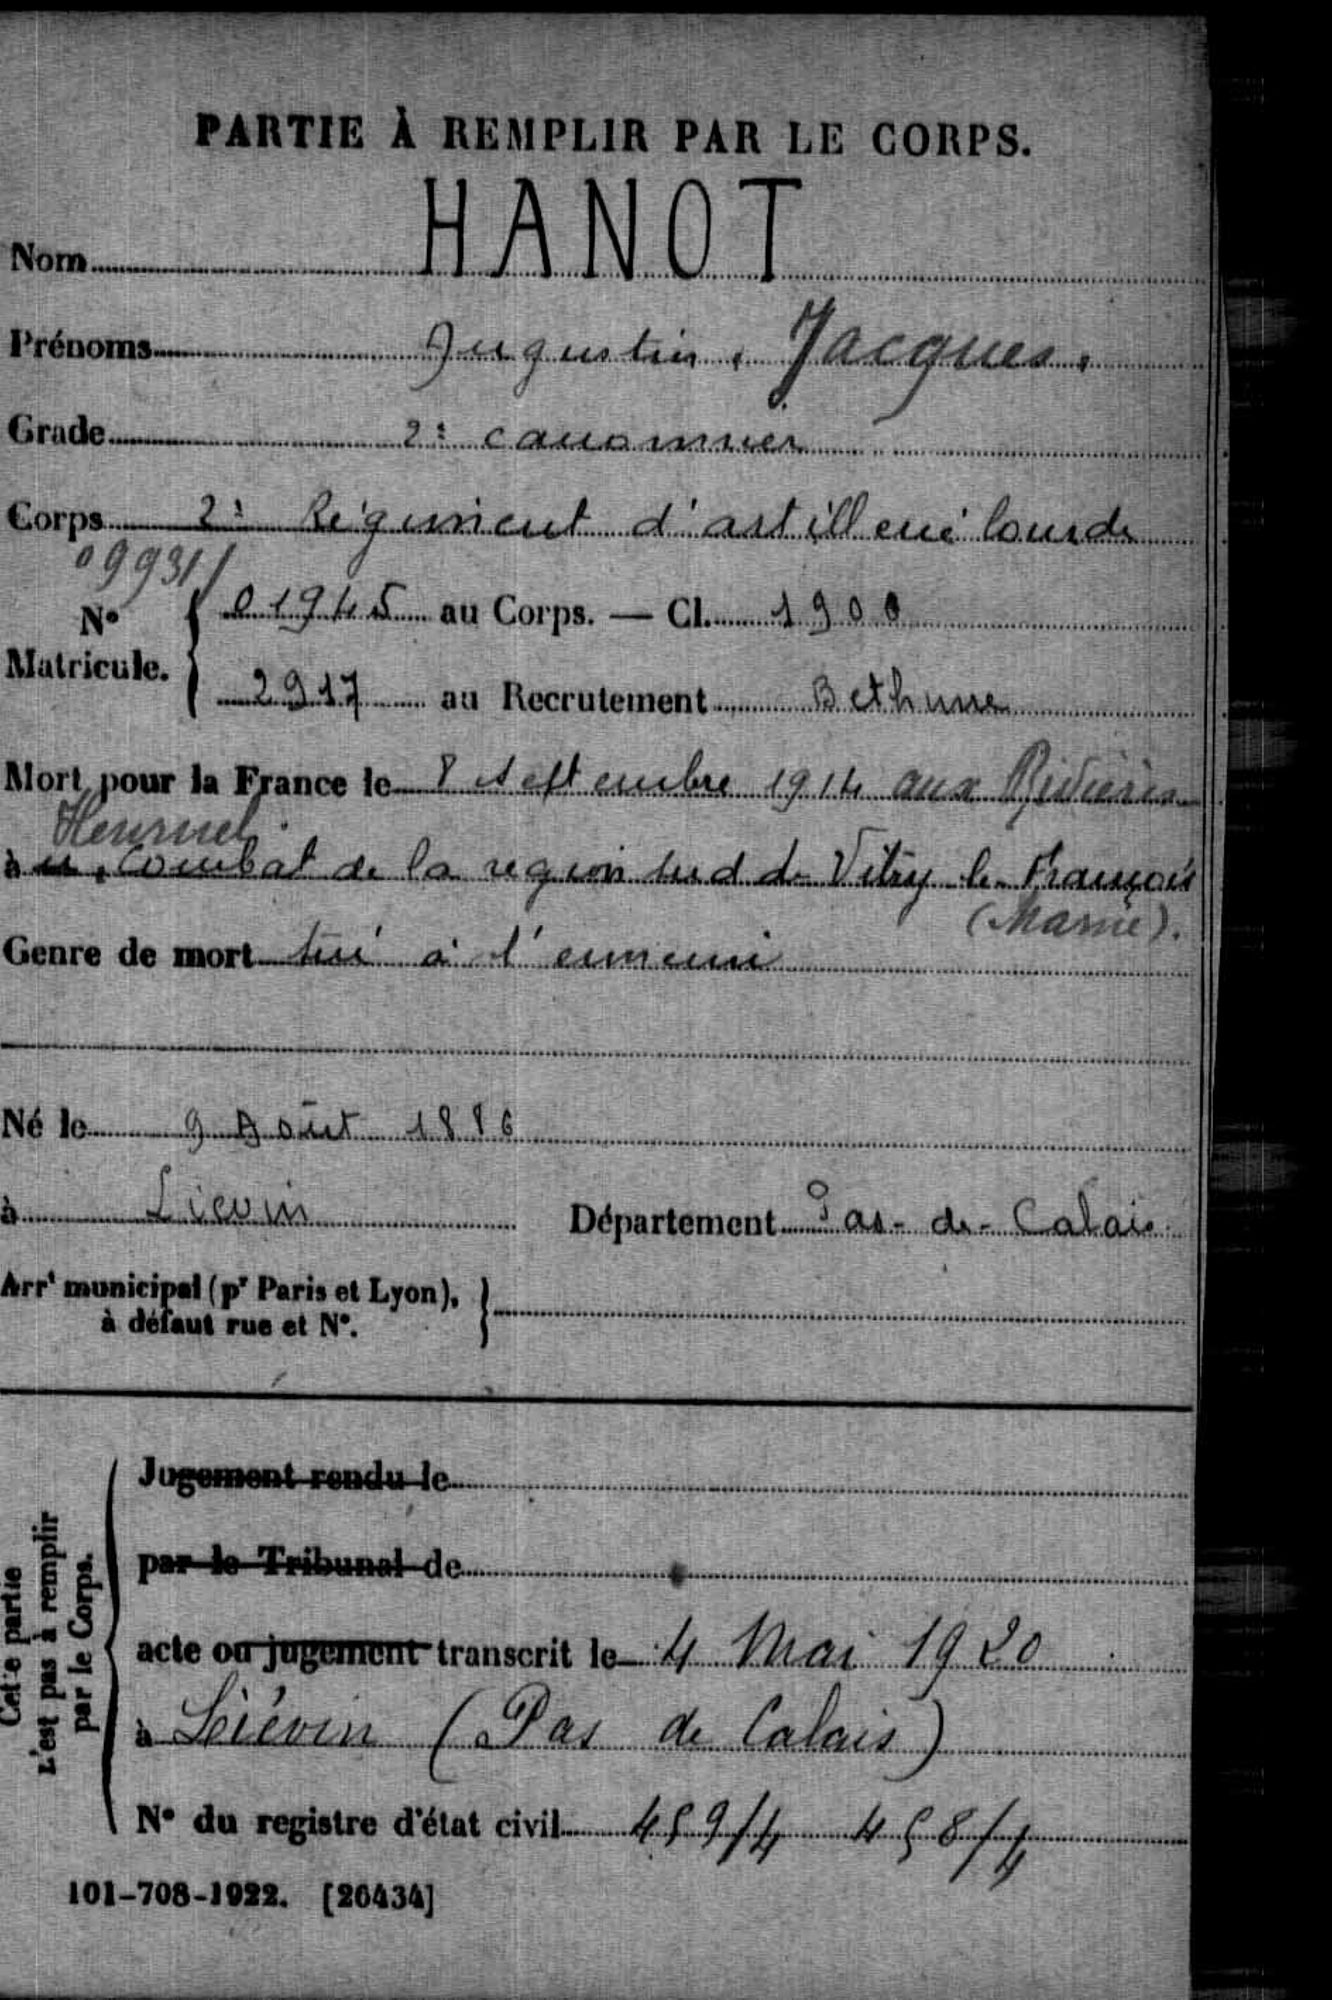 PARTIE À REMPLIR PAR LE CORPS.
Nom HANOT
Prénoms Augustin, Jacques.
Grade 2e canonnier
Corps 2e Régiment d'artillerie lourde
09931/
N° Matricule. { 01945 au Corps. — Cl. 1900
2917 au Recrutement Bethune
Mort pour la France le 8 septembre 1914 aux Rivières
Henruel.
à combat de la region sud de Vitry le François
(Marne).
Genre de mort tué à l'ennemi
Né le 9 Août 1886
à Lievin Département Pas-de-Calais
Arrt municipal (pr Paris et Lyon), }
à défaut rue et N°.
Cette partie
n'est pas à remplir
par le Corps.
Jugement rendu le
par le Tribunal de
acte ou jugement transcrit le 4 Mai 1920
à Liévin (Pas de Calais)
N° du registre d'état civil 459/4 458/4
101-708-1922. [26434]